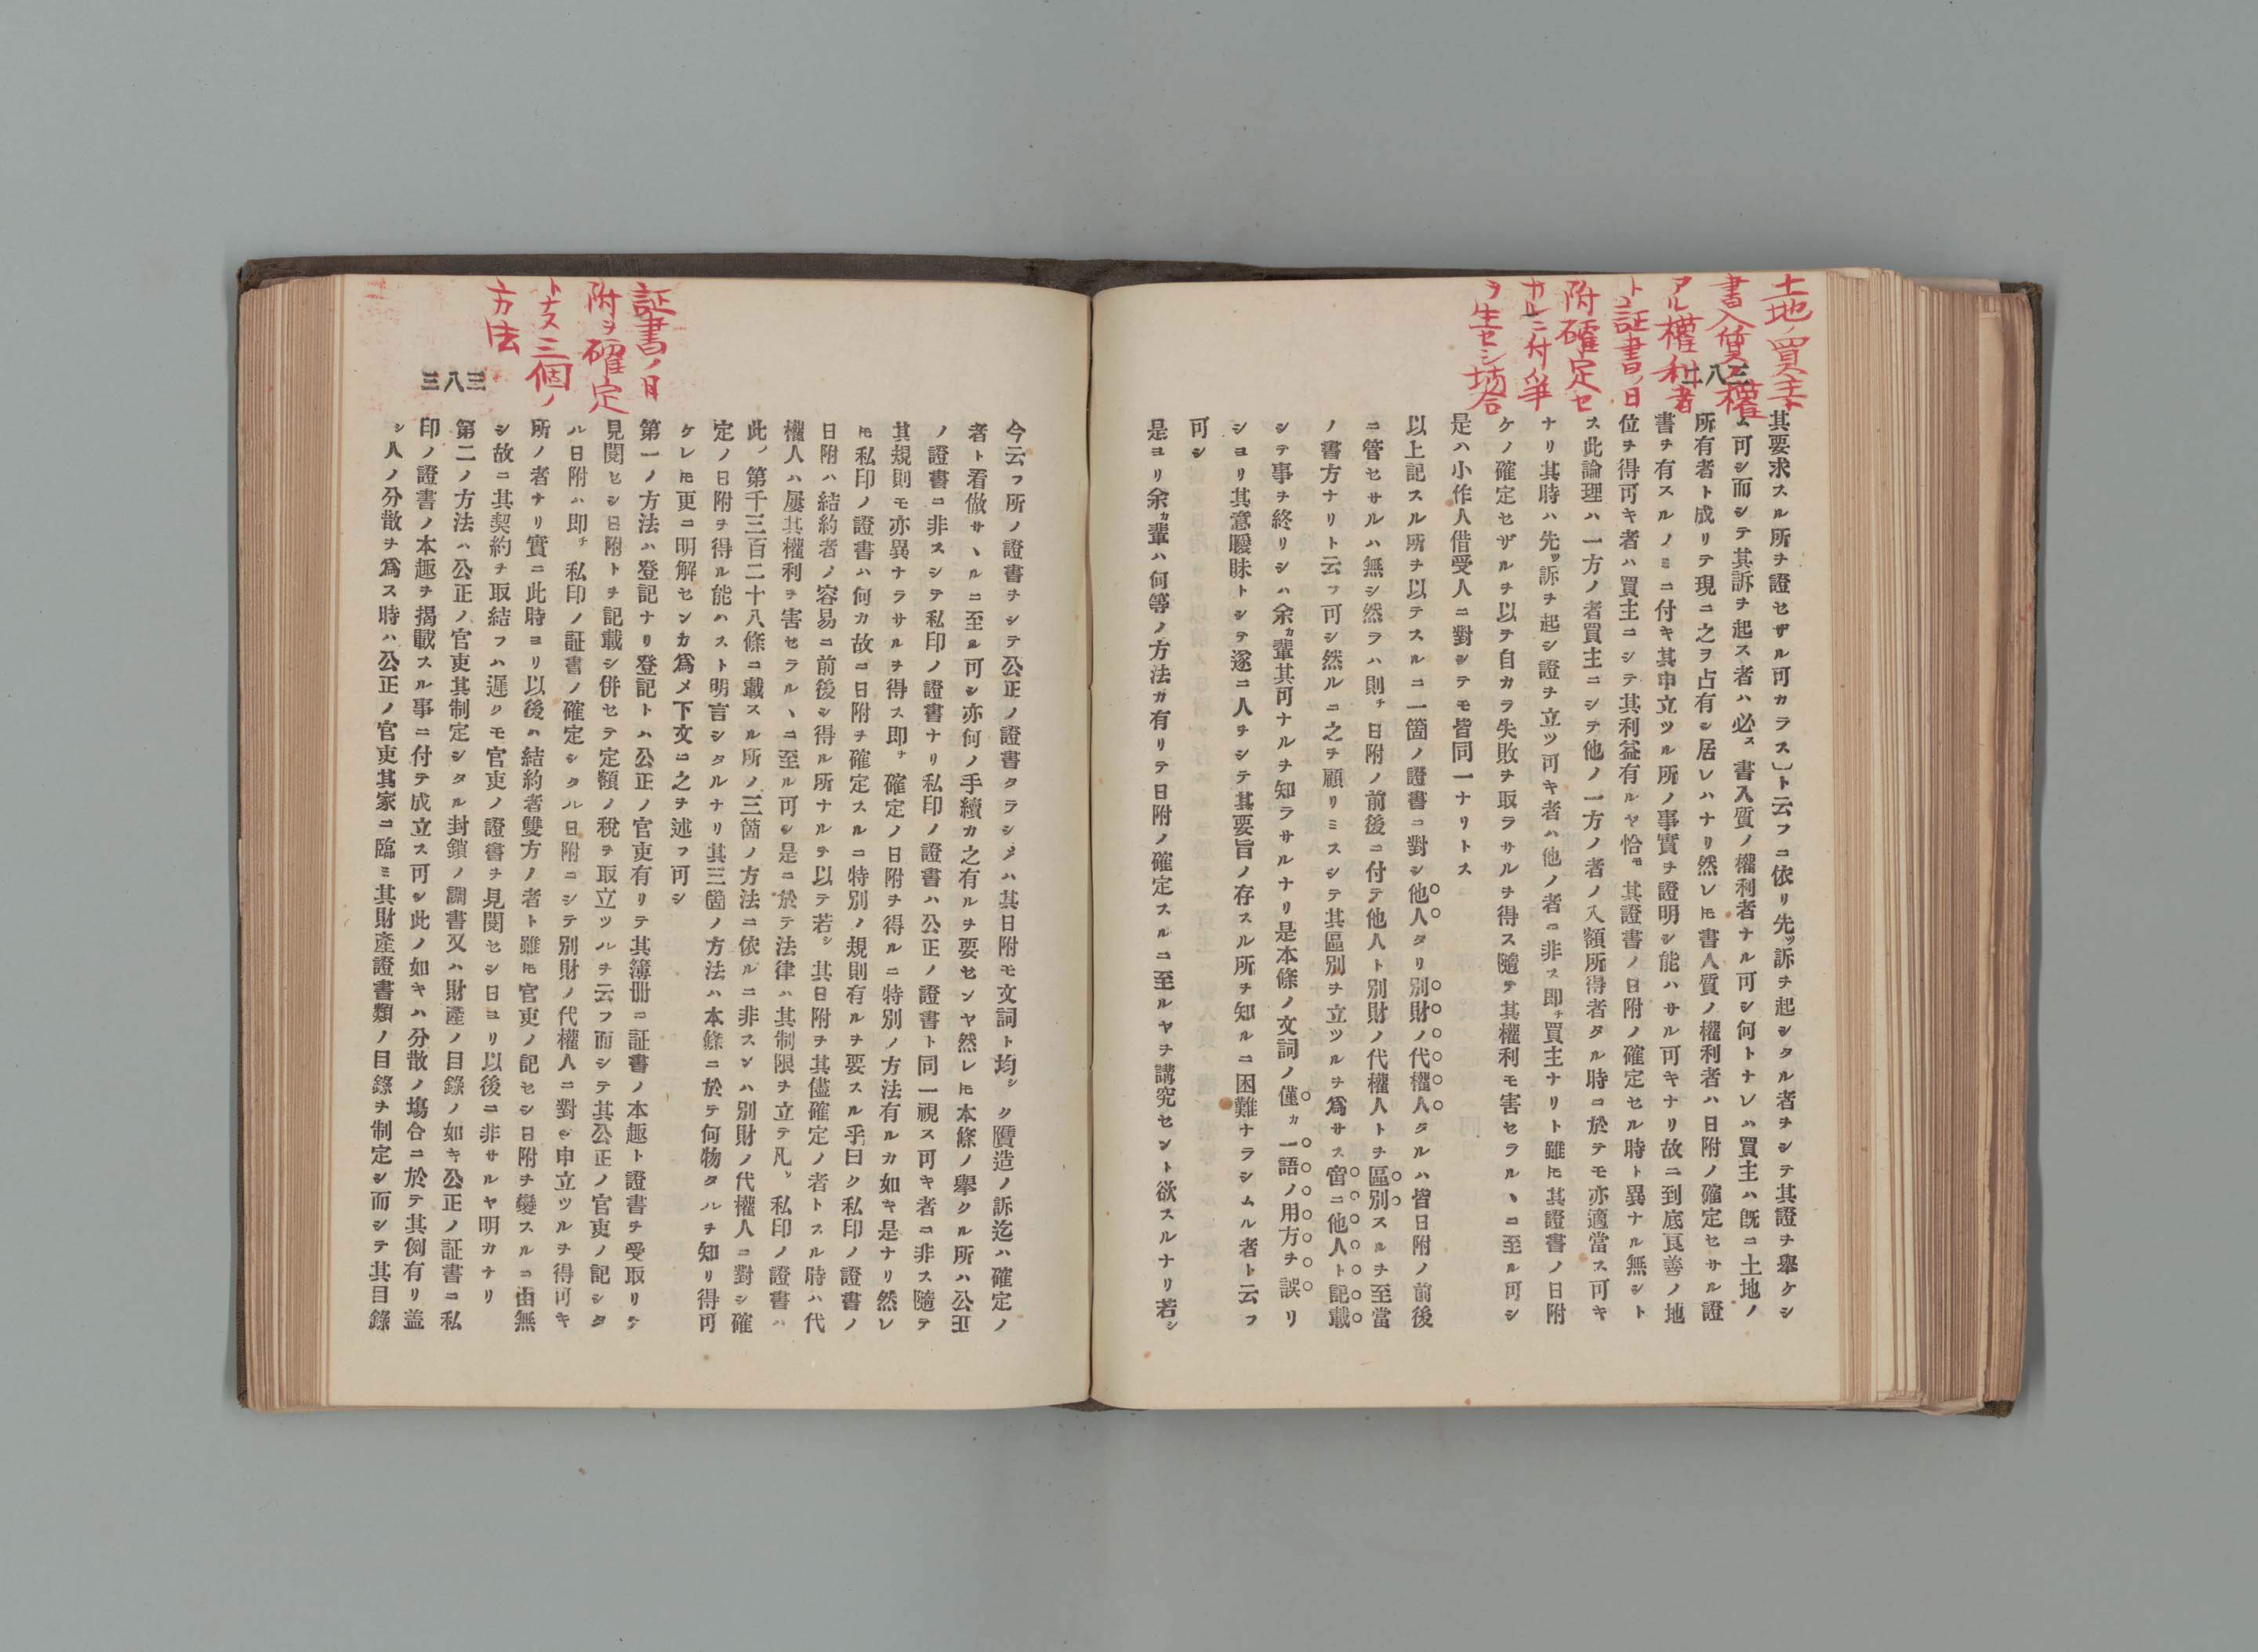 土地ノ買主ト
書入質ノ權
アル權利者
ト証書ノ日
附確定セ
サルニ付爭
ヲ生セシ塲合
三八二
其要求スル所ヲ證セザル可カラス」ト云フニ依リ先ッ訴ヲ起シタル者ヲシテ其證ヲ擧ケシ
ム可シ而シテ其訴ヲ起ス者ハ必ス書入質ノ權利者ナル可シ何トナレハ買主ハ既ニ土地ノ
所有者ト成リテ現ニ之ヲ占有シ居レハナリ然レ𪜈書入質ノ權利者ハ日附ノ確定セサル證
書ヲ有スルノミニ付キ其申立ツル所ノ事實ヲ證明シ能ハサル可キナリ故ニ到底良善ノ地
位ヲ得可キ者ハ買主ニシテ其利益有ルヤ恰モ其證書ノ日附ノ確定セル時ト異ナル無シト
ス此論理ハ一方ノ者買主ニシテ他ノ一方ノ者ノ入額所得者タル時ニ於テモ亦適當ス可キ
ナリ其時ハ先ッ訴ヲ起シ證ヲ立ツ可キ者ハ他ノ者ニ非ス即チ買主ナリト雖𪜈其證書ノ日附
ケノ確定セザルヲ以テ自カラ失敗ヲ取ラサルヲ得ス隨テ其權利モ害セラルヽニ至ル可シ
是ハ小作人借受人ニ對シテモ皆同一ナリトス
以上記スル所ヲ以テスルニ一箇ノ證書ニ對シ他人タリ別財ノ代權人タルハ皆日附ノ前後
ニ管セサルハ無シ然ラハ則チ日附ノ前後ニ付テ他人ト別財ノ代權人トヲ區別スルヲ至當
ノ書方ナリト云フ可シ然ルニ之ヲ顧リミスシテ其區別ヲ立ツルヲ爲サス啻ニ他人ト記載
シテ事ヲ終リシハ余カ輩其可ナルヲ知ラサルナリ是本條ノ文詞ノ僅カ一語ノ用方ヲ誤リ
シヨリ其意曖眛トシテ遂ニ人ヲシテ其要旨ノ存スル所ヲ知ルニ困難ナラシムル者ト云フ
可シ
是ヨリ余カ輩ハ何等ノ方法カ有リテ日附ノ確定スルニ至ルヤヲ講究セント欲スルナリ若シ
証書ノ日
附ヲ確定
トナス三個ノ
方法
三八三
今云フ所ノ證書ヲシテ公正ノ證書タラシメハ其日附モ文詞ト均シク贋造ノ訴迄ハ確定ノ
者ト看做サヽルニ至ル可シ亦何ノ手續カ之有ルヲ要センヤ然レ𪜈本條ノ擧クル所ハ公正
ノ證書ニ非スシテ私印ノ證書ナリ私印ノ證書ハ公正ノ證書ト同一視ス可キ者ニ非ス隨テ
其規則モ亦異ナラサルヲ得ス即チ確定ノ日附ヲ得ルニ特別ノ方法有ルカ如キ是ナリ然レ
𪜈私印ノ證書ハ何カ故ニ日附ヲ確定スルニ特別ノ規則有ルヲ要スル乎曰ク私印ノ證書ノ
日附ハ結約者ノ容易ニ前後シ得ル所ナルヲ以テ若シ其日附ヲ其儘確定ノ者トスル時ハ代
權人ハ屢其權利ヲ害セラルヽニ至ル可シ是ニ於テ法律ハ其制限ヲ立テ凡ソ私印ノ證書ハ
此ノ第千三百二十八條ニ載スル所ノ三箇ノ方法ニ依ルニ非スンハ別財ノ代權人ニ對シ確
定ノ日附ヲ得ル能ハスト明言シタルナリ其三箇ノ方法ハ本條ニ於テ何物タルヲ知リ得可
ケレ𪜈更ニ明解センカ爲メ下文ニ之ヲ述フ可シ
第一ノ方法ハ登記ナリ登記トハ公正ノ官吏有リテ其簿册ニ証書ノ本趣ト證書ヲ受取リシ
見閲セシ日附トヲ記載シ併セテ定額ノ稅ヲ取立ツルヲ云フ而シテ其公正ノ官吏ノ記シタ
ル日附ハ即チ私印ノ証書ノ確定シタル日附ニシテ別財ノ代權人ニ對シ申立ツルヲ得可キ
所ノ者ナリ實ニ此時ヨリ以後ハ結約者雙方ノ者ト雖𪜈官吏ノ記セシ日附ヲ變スルニ由無
シ故ニ其契約ヲ取結フハ遲クモ官吏ノ證書ヲ見閲セシ日ヨリ以後ニ非サルヤ明カナリ
第二ノ方法ハ公正ノ官吏其制定シタル封鎖ノ調書又ハ財產ノ目錄ノ如キ公正ノ証書ニ私
印ノ證書ノ本趣ヲ揭載スル事ニ付テ成立ス可シ此ノ如キハ分散ノ塲合ニ於テ其例有リ蓋
シ人ノ分散ヲ爲ス時ハ公正ノ官吏其家ニ臨ミ其財產證書類ノ目錄ヲ制定シ而シテ其目錄